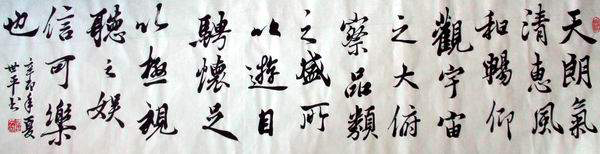 天朗氣
清惠風
和暢仰
觀宇宙
之大俯
察品類
之盛所
以遊目
騁懷足
以極視
聽之娛
信可樂
也
辛卯年夏
世平书